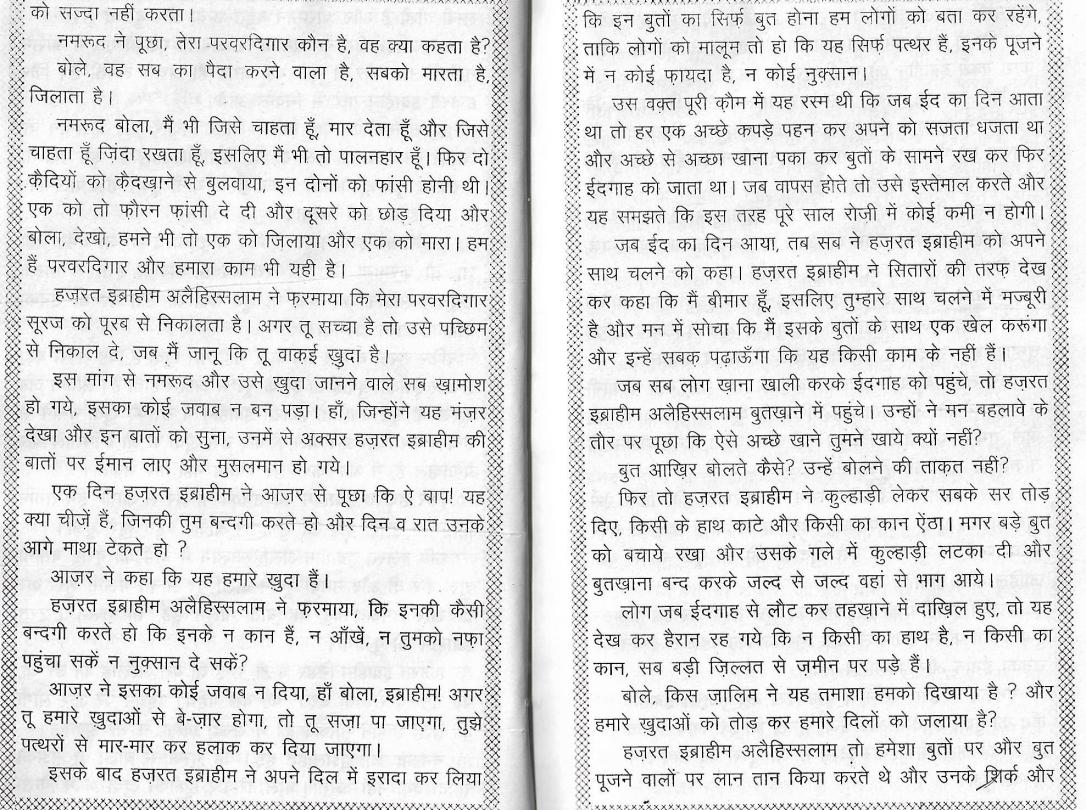 को सज्दा नहीं करता।
नमरूद ने पूछा, तेरा परवरदिगार कौन है, वह क्या कहता है?
बोले, वह सब का पैदा करने वाला है, सबको मारता है,
जिलाता है।
नमरूद बोला, मैं भी जिसे चाहता हूँ, मार देता हूँ और जिसे
चाहता हूँ ज़िंदा रखता हूँ, इसलिए मैं भी तो पालनहार हूँ। फिर दो
क़ैदियों को क़ैदख़ाने से बुलवाया, इन दोनों को फांसी होनी थी।
एक को तो फ़ौरन फ़ांसी दे दी और दूसरे को छोड़ दिया और
बोला, देखो, हमने भी तो एक को जिलाया और एक को मारा। हम
हैं परवरदिगार और हमारा काम भी यही है।
हज़रत इब्राहीम अलैहिस्सलाम ने फ़रमाया कि मेरा परवरदिगार
सूरज को पूरब से निकालता है। अगर तू सच्चा है तो उसे पच्छिम
से निकाल दे, जब मैं जानू कि तू वाक़ई ख़ुदा है।
इस मांग से नमरूद और उसे ख़ुदा जानने वाले सब ख़ामोश
हो गये, इसका कोई जवाब न बन पड़ा। हाँ, जिन्होंने यह मंज़र
देखा और इन बातों को सुना, उनमें से अक्सर हज़रत इब्राहीम की
बातों पर ईमान लाए और मुसलमान हो गये।
एक दिन हज़रत इब्राहीम ने आज़र से पूछा कि ऐ बाप! यह
क्या चीज़ें हैं, जिनकी तुम बन्दगी करते हो और दिन व रात उनके
आगे माथा टेकते हो ?
आज़र ने कहा कि यह हमारे ख़ुदा हैं।
हज़रत इब्राहीम अलैहिस्सलाम ने फ़रमाया, कि इनकी कैसी
बन्दगी करते हो कि इनके न कान हैं, न आँखें, न तुमको नफ़ा
पहुंचा सकें न नुक़्सान दे सकें?
आज़र ने इसका कोई जवाब न दिया, हाँ बोला, इब्राहीम! अगर
तू हमारे ख़ुदाओं से बे-ज़ार होगा, तो तू सज़ा पा जाएगा, तुझे
पत्थरों से मार-मार कर हलाक कर दिया जाएगा।
इसके बाद हज़रत इब्राहीम ने अपने दिल में इरादा कर लिया
कि इन बुतों का सिर्फ़ बुत होना हम लोगों को बता कर रहेंगे,
ताकि लोगों को मालूम तो हो कि यह सिर्फ पत्थर हैं, इनके पूजने
में न कोई फ़ायदा है, न कोई नुक़्सान।
उस वक़्त पूरी क़ौम में यह रस्म थी कि जब ईद का दिन आता
था तो हर एक अच्छे कपड़े पहन कर अपने को सजता धजता था
और अच्छे से अच्छा खाना पका कर बुतों के सामने रख कर फिर
ईदगाह को जाता था। जब वापस होते तो उसे इस्तेमाल करते और
यह समझते कि इस तरह पूरे साल रोज़ी में कोई कमी न होगी।
जब ईद का दिन आया, तब सब ने हज़रत इब्राहीम को अपने
साथ चलने को कहा। हज़रत इब्राहीम ने सितारों की तरफ़ देख
कर कहा कि मैं बीमार हूँ, इसलिए तुम्हारे साथ चलने में मज्बूरी
है और मन में सोचा कि मैं इसके बुतों के साथ एक खेल करूंगा
और इन्हें सबक़ पढ़ाऊँगा कि यह किसी काम के नहीं हैं।
जब सब लोग खाना खाली करके ईदगाह को पहुंचे, तो हज़रत
इब्राहीम अलेहिस्सलाम बुतख़ाने में पहुंचे। उन्हों ने मन बहलावे के
तौर पर पूछा कि ऐसे अच्छे खाने तुमने खाये क्यों नहीं?
बुत आख़िर बोलते कैसे? उन्हें बोलने की ताक़त नहीं?
फिर तो हज़रत इब्राहीम ने कुल्हाड़ी लेकर सबके सर तोड़
दिए, किसी के हाथ काटे और किसी का कान ऐंठा। मगर बड़े बुत
को बचाये रखा और उसके गले में कुल्हाड़ी लटका दी और
बुतख़ाना बन्द करके जल्द से जल्द वहां से भाग आये।
लोग जब ईदगाह से लौट कर तहखाने में दाख़िल हुए, तो यह
देख कर हैरान रह गये कि न किसी का हाथ है, न किसी का
कान, सब बड़ी ज़िल्लत से ज़मीन पर पड़े हैं।
बोले, किस ज़ालिम ने यह तमाशा हमको दिखाया है ? और
हमारे ख़ुदाओं को तोड़ कर हमारे दिलों को जलाया है?
हज़रत इब्राहीम अलैहिस्सलाम तो हमेशा बुतों पर और बुत
पूजने वालों पर लान तान किया करते थे और उनके शिर्क और